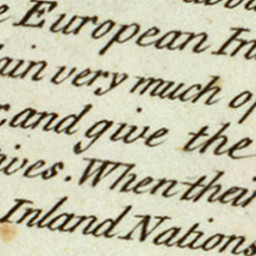 European In
ain very much of
and give the
ives. When their
Inland Nations